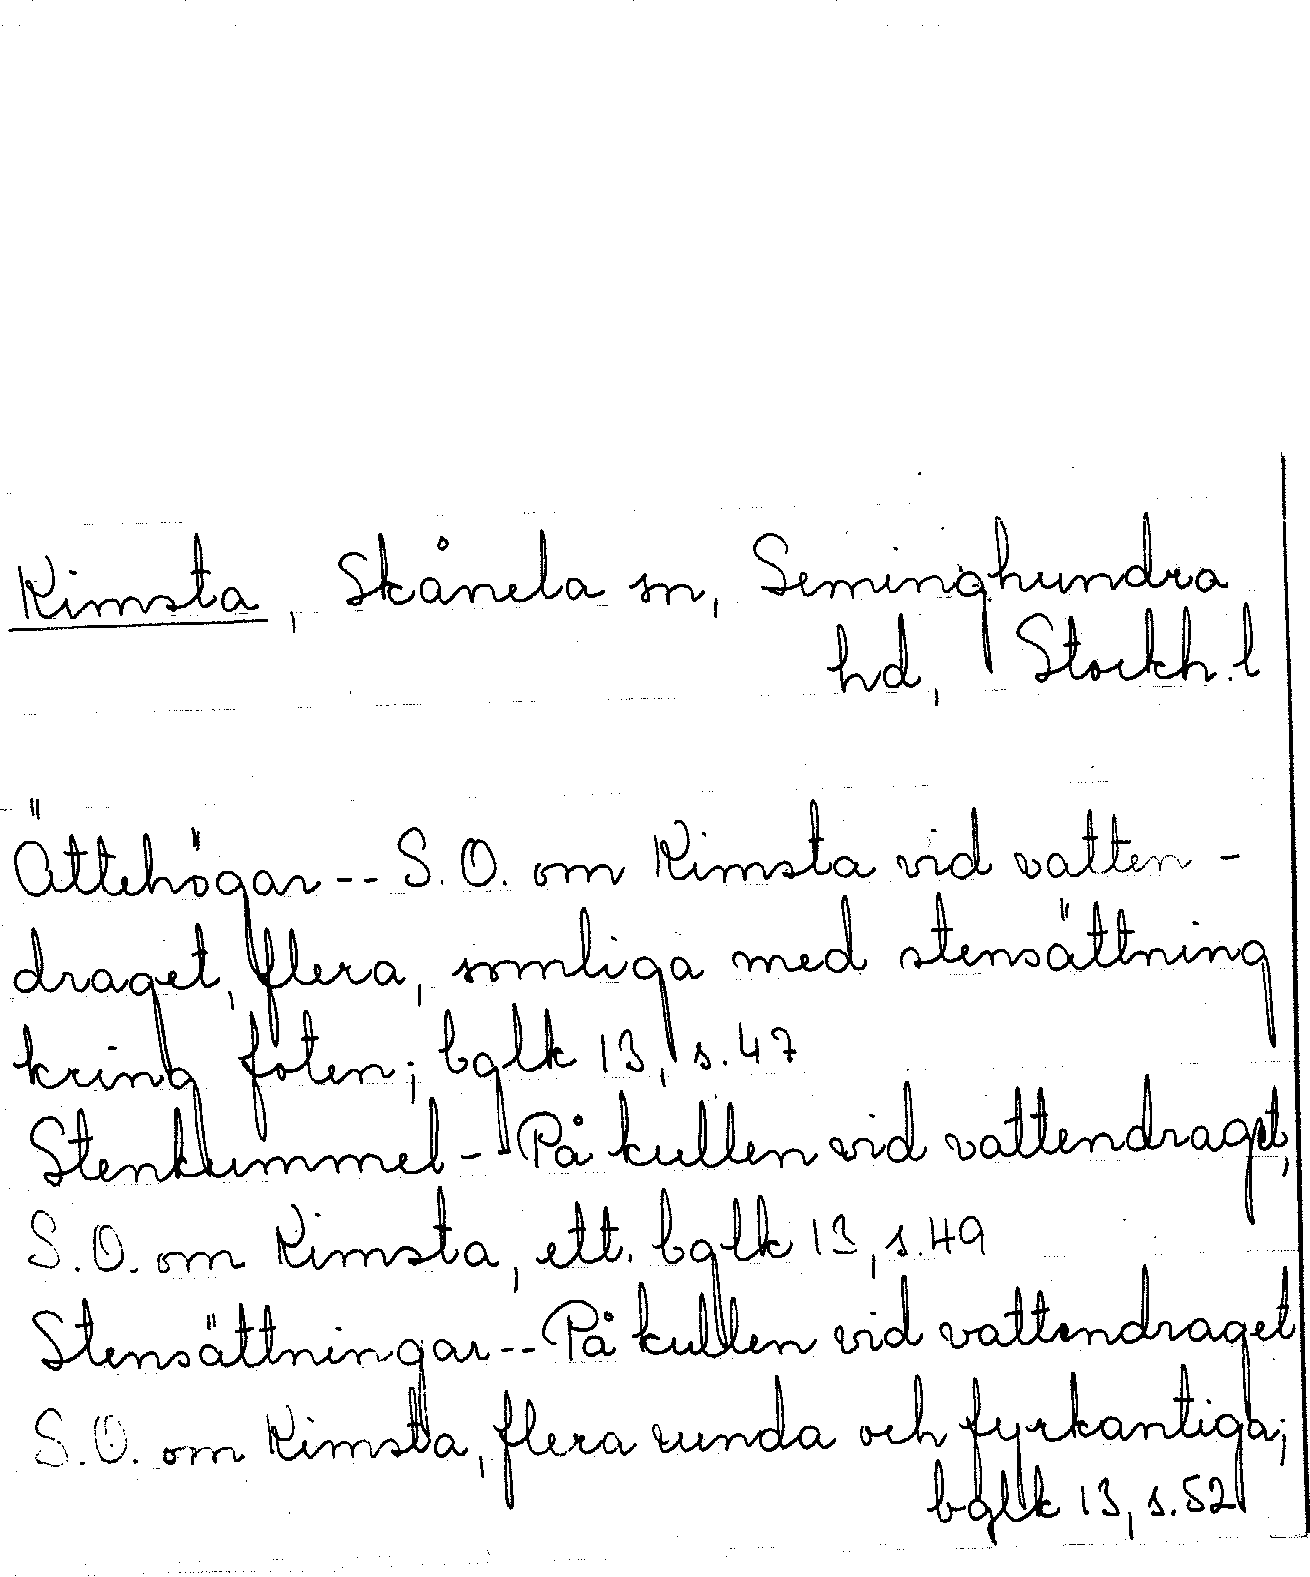 Kimsta, Skånela sn, Seminghundra
hd, Stockh. l
Ättehögar -- S.O. om Kimsta vid vatten -
draget, flera, somliga med stensättning
kring foten; bglk 13, s.47
Stenkummel - På kullen vid vattendraget,
S.O. om Kimsta, ett. bglk 13, s.49
Stensättningar -- På kullen vid vattendraget
S.O. om Kimsta, flera runda och fyrkantiga;
bglk 13, s.52